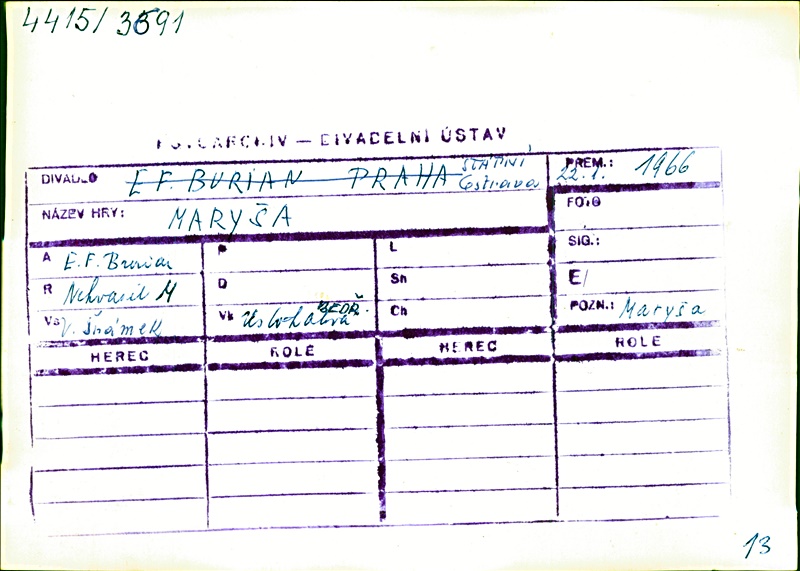 4415/3591
FOTOARCHIV — DIVADELNÍ ÚSTAV
DIVADLO E F. BURIAN PRAHA STÁTNÍ Ostrava
PREM.: 22.1. 1966
NÁZEV HRY: MARYŠA
FOTO
A E. F. Burian
P
L
SIG.:
R Nehvasil M
D
Sh
E/
Vs V. Šrámek
Vk BEDŘ.
Ch
POZN.: Maryša
HEREC ROLE HEREC ROLE
13